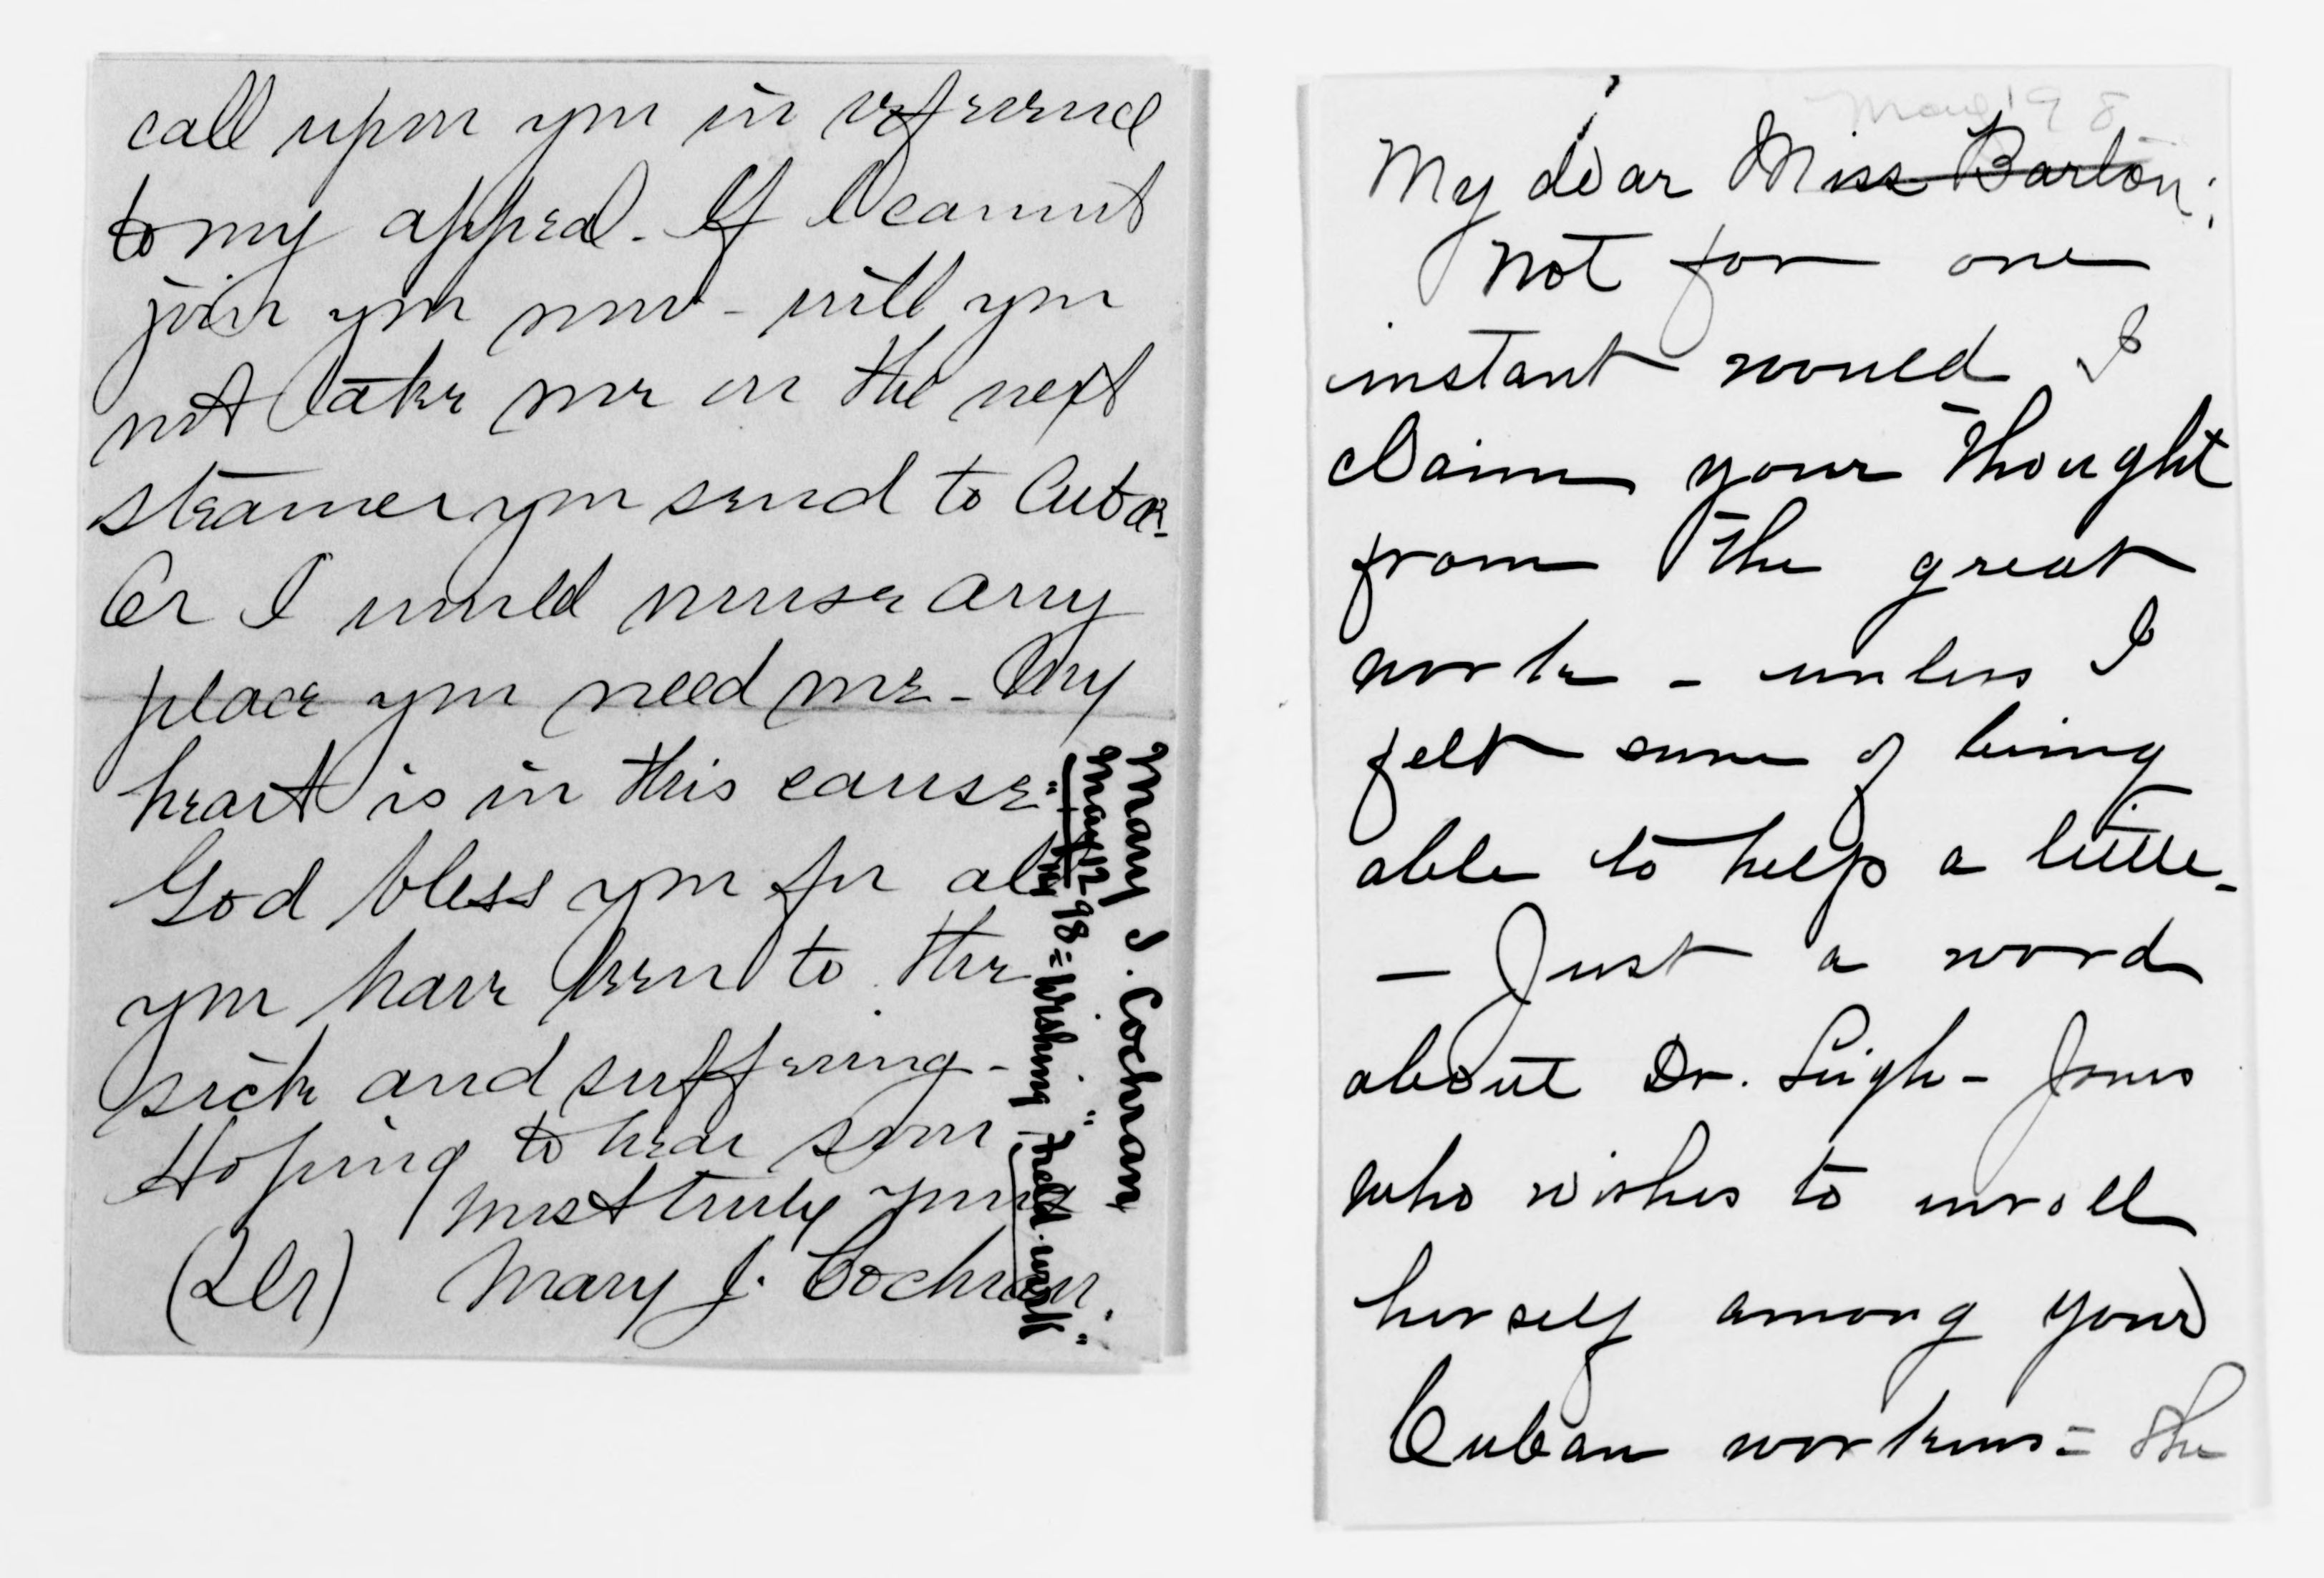 call upon you in reference
to my appeal. If I cannot
join you now - will you
not take me on the next
steamer you send to Cuba.
Or I would nurse any
place you need me - My
heart is in this cause
God bless you for all
you have been to the
sick and suffering -
Hoping to hear soon
most truly yours
Mary J. Cochran.
Mary J. Cochran
May 12 98 = Wishing
"field work"
May '98
My dear Miss Barton:
Not for one
instant would I
claim your thought
from the great
work - unless I
felt sure of being
able to help a little -
- Just a word
about Dr. Leigh - Jones
who wishes to enroll
herself among your
Cuban workers = the